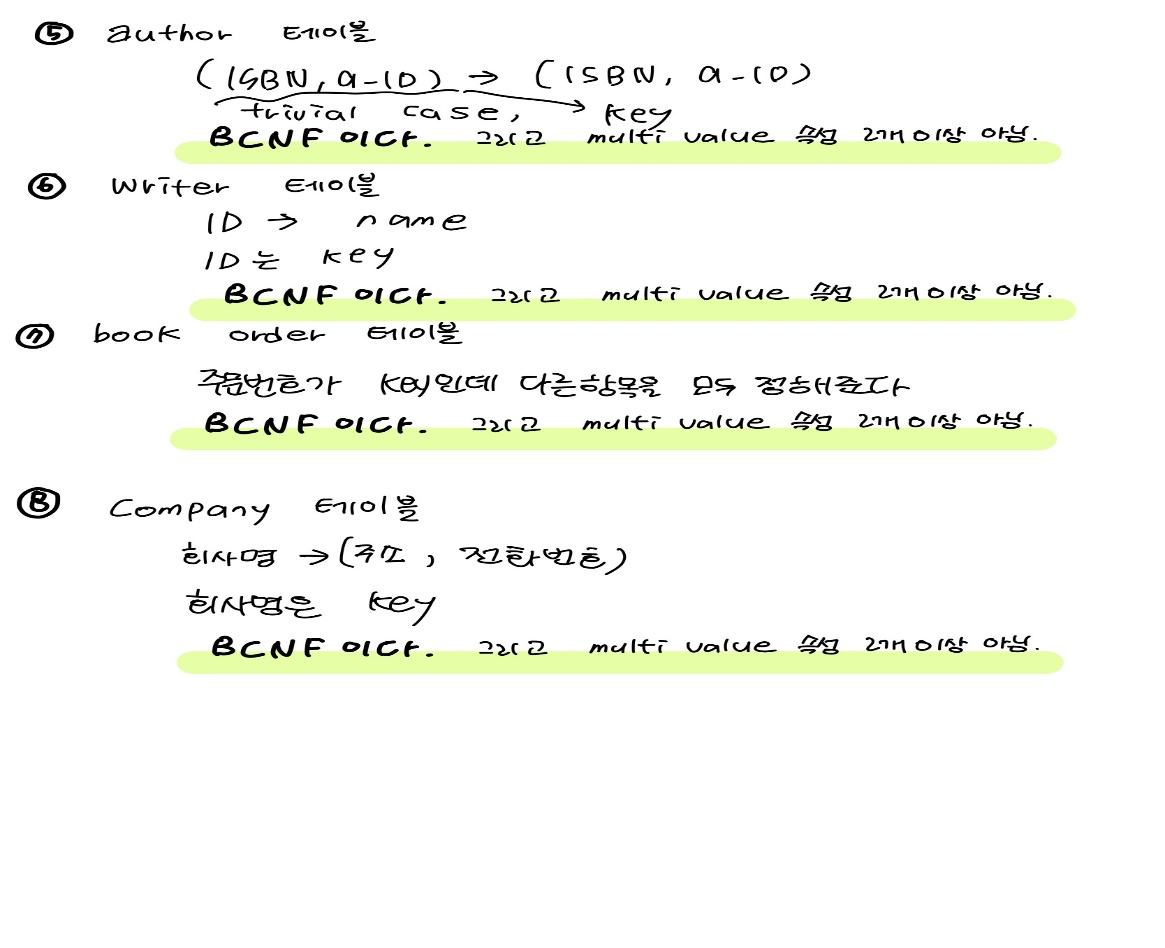 ⑤ author 테이블
(ISBN, a-ID) → (ISBN, a-ID)
trivial case, key
BCNF 이다. 그리고 multi value 속성 2개 이상 아님.
⑥ writer 테이블
ID → name
ID는 key
BCNF 이다. 그리고 multi value 속성 2개 이상 아님.
⑦ book order 테이블
주문번호가 key인데 다른항목을 모두 정해준다
BCNF 이다. 그리고 multi value 속성 2개 이상 아님.
⑧ Company 테이블
회사명 → (주소, 전화번호)
회사명은 key
BCNF 이다. 그리고 multi value 속성 2개 이상 아님.